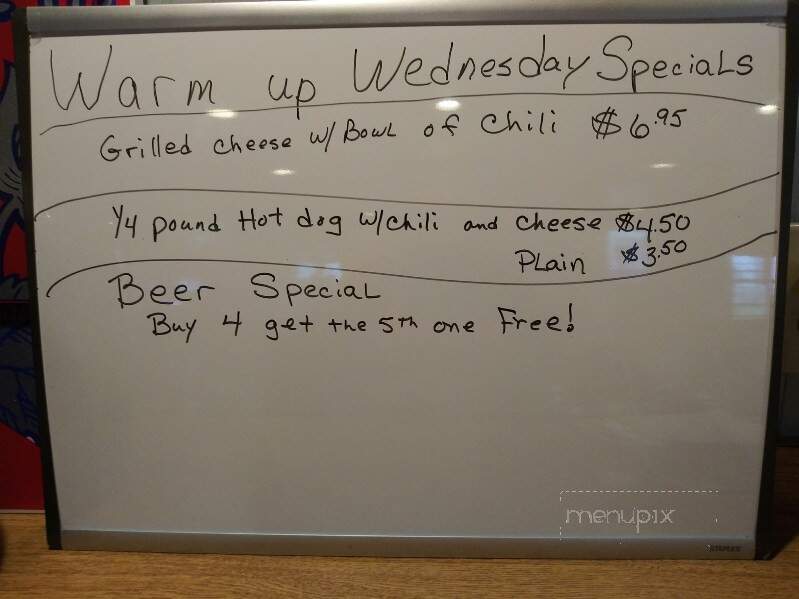 Warm up Wednesday Specials
Grilled cheese w/ Bowl of chili $6.95
1/4 pound Hot dog w/chili and cheese $4.50
Plain $3.50
Beer Special
Buy 4 get the 5th one Free!
menupix
STAPLES